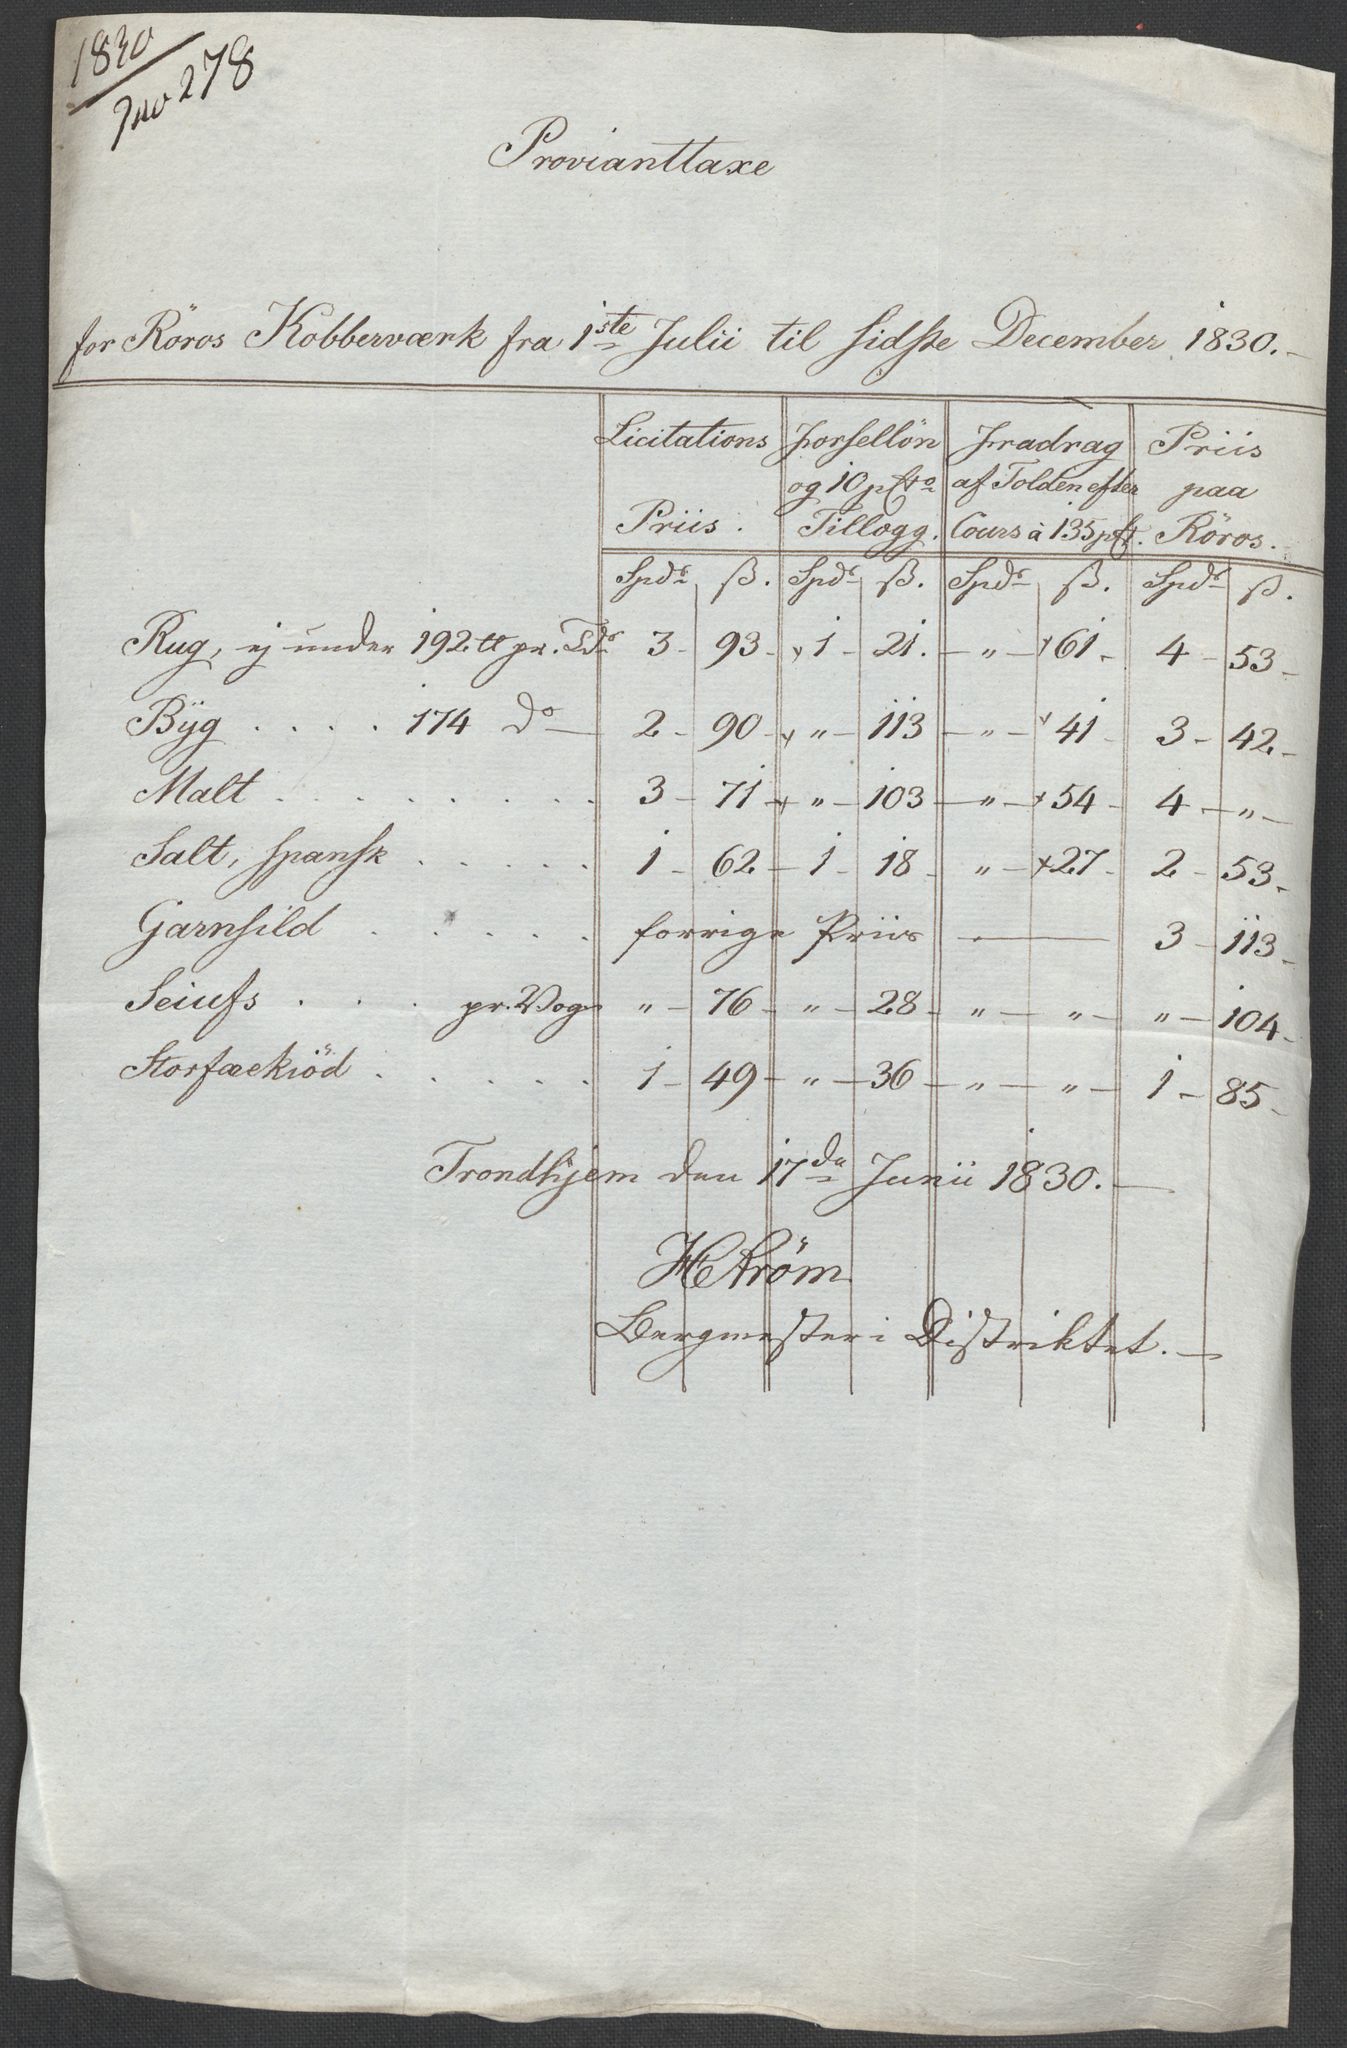 1830
No 278
Provianttaxe
for Röros Kobberværk fra 1ste Julii til sidste December 1830.
Licitations Forsellön Fradrag Priis
og 10 pCto af Tolden efter paa
Priis. Tillægg. Cours à 135 pCt. Röros.
Spdr ß. Spdr ß. Spdr ß. Spdr ß.
Rug, ej under 192 ℔ pr. Tdr 3 - 93 - 1 - 21. - " - 61 - 4 - 53 -
Býg . . . . 174 do — 2 - 90 - " - 113 - " - 41 - 3 - 42 -
Malt . . . . . . . . . 3 - 71 - " - 103 - " - 54 - 4 - " -
Salt, spansk . . . . . 1 - 62 - 1 - 18 - " - 27 - 2 - 53 -
Garnsild . . . . . forrige Priis — 3 - 113 -
Seiufs . . . pr. Vog " - 76 - " - 28 - " - " - " - 104 -
Storfæekiöd . . . . . 1 - 49 - " - 36 - " - " - 1 - 85 -
Trondhjem den 17de Junii 1830. —
HStrøm
Bergmester i Distriktet. —